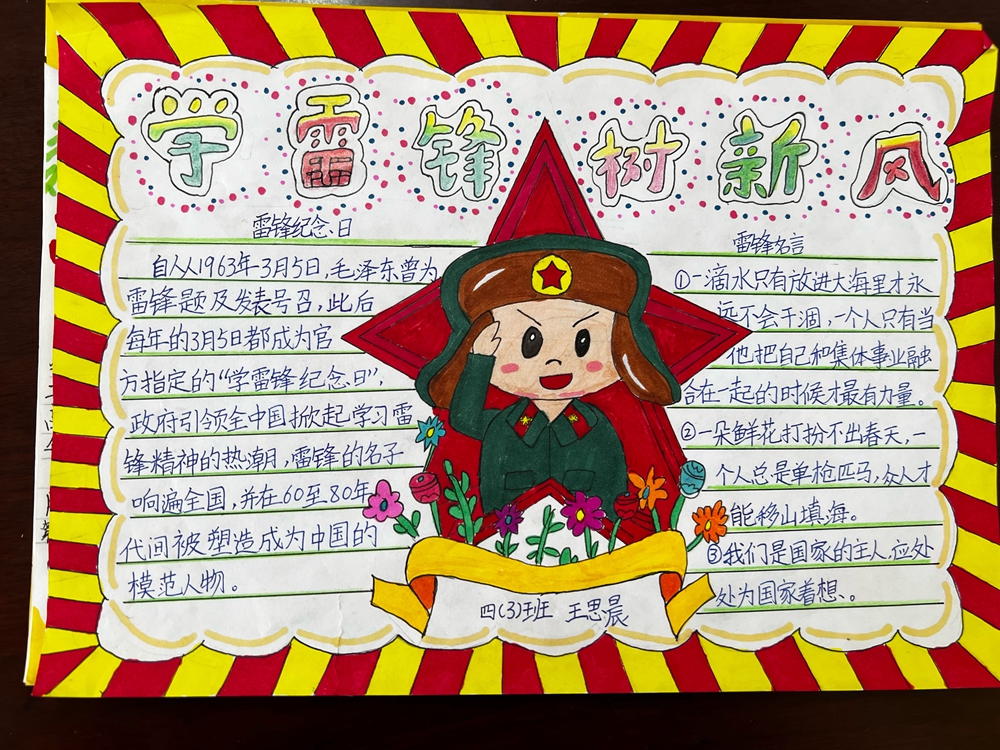 学雷锋树新风
雷锋纪念日
自从1963年3月5日,毛泽东曾为
雷锋题及发表号召,此后
每年的3月5日都成为官
方指定的“学雷锋纪念日”,
政府引领全中国掀起学习雷
锋精神的热潮,雷锋的名子
响遍全国,并在60至80年
代间被塑造成为中国的
模范人物。
雷锋名言
①一滴水只有放进大海里才永
远不会干涸,一个人只有当
他把自己和集体事业融
合在一起的时候才最有力量。
②一朵鲜花打扮不出春天,一
个人总是单枪匹马,众人才
能移山填海。
③我们是国家的主人,应处
处为国家着想、。
四(3)班 王思晨